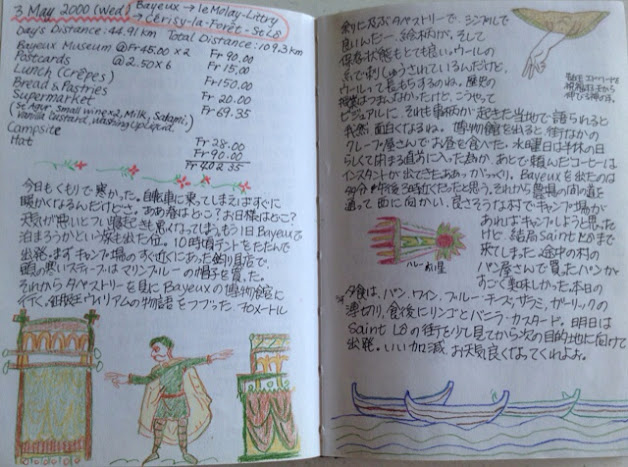 3 May 2000 (wed)
Bayeux → le Molay-Littry
→ Cerisy-la-Forêt → St Lô
Day's Distance: 44.91 km Total Distance: 109.3 km
Bayeux Museum @Fr 45.00 × 2 Fr 90.00
Postcards @ 2.50 × 6 Fr 15.00
Lunch (Crêpes) Fr 150.00
Bread & Pastries Fr 20.00
Supermarket Fr 69.35
(St Agur, small wine x2, Milk, Salami,
Vanilla Custard, washing up liquid)
Campsite Fr 28.00
Hat Fr 90.00
Fr 402.35
今日もくもりで寒かった。自転車に乗ってしまえばすぐに
暖かくなるんだけどさ。ああ春はどこ?お日様はどこ?
天気が悪いとつい寝起きも悪くなってしまう。もう1日Bayeuxで
泊まろうかという案も出た位。10時頃テントをたたんで
出発。まずキャンプ場のすぐ近くにあった釣り具店で
頭の寒いスティーブはマリンブルーの帽子を買った。
それからタペストリーを見にBayeuxの博物館に
行く。征服王ウィリアムの物語をつづった、70メートル
余りに及ぶタペストリーで、シンプルで
良いんだー、絵柄が。そして
保存状態もとても良い。ウールの
糸で刺しゅうされているんだけど、
ウールって長もちするのね。歴史の
授業はつまんなかったけど、こうやって
ビジュアルに、それも事柄が起きた当地で語られると
俄然面白くなるねぇ。博物館を出ると街なかの
クレープ屋さんでお昼を食べた。水曜日は半休の日
らしくて閉まる直前に入った為か、あとで頼んだコーヒーは
インスタントが出てきた。ああ、がっくり。Bayeuxを出たのは
多分午後3時近くだったと思う。それから農場の間の道を
通って西に向かい、良さそうな村でキャンプ場が
あればキャンプしようと思った
けど、結局Saint Lôまで
来てしまった。途中の村の
パン屋さんで買ったパンが
すごく美味しかった。本日の
ハレーすい星
夕食は、パン、ワイン、ブルーチーズ、サラミ、ガーリックの
薄切り、食後にリンゴとバニラ・カスタード。明日は
Saint Lôの街を少し見てから次の目的地に向けて
出発。いい加減お天気良くなってくれよお。